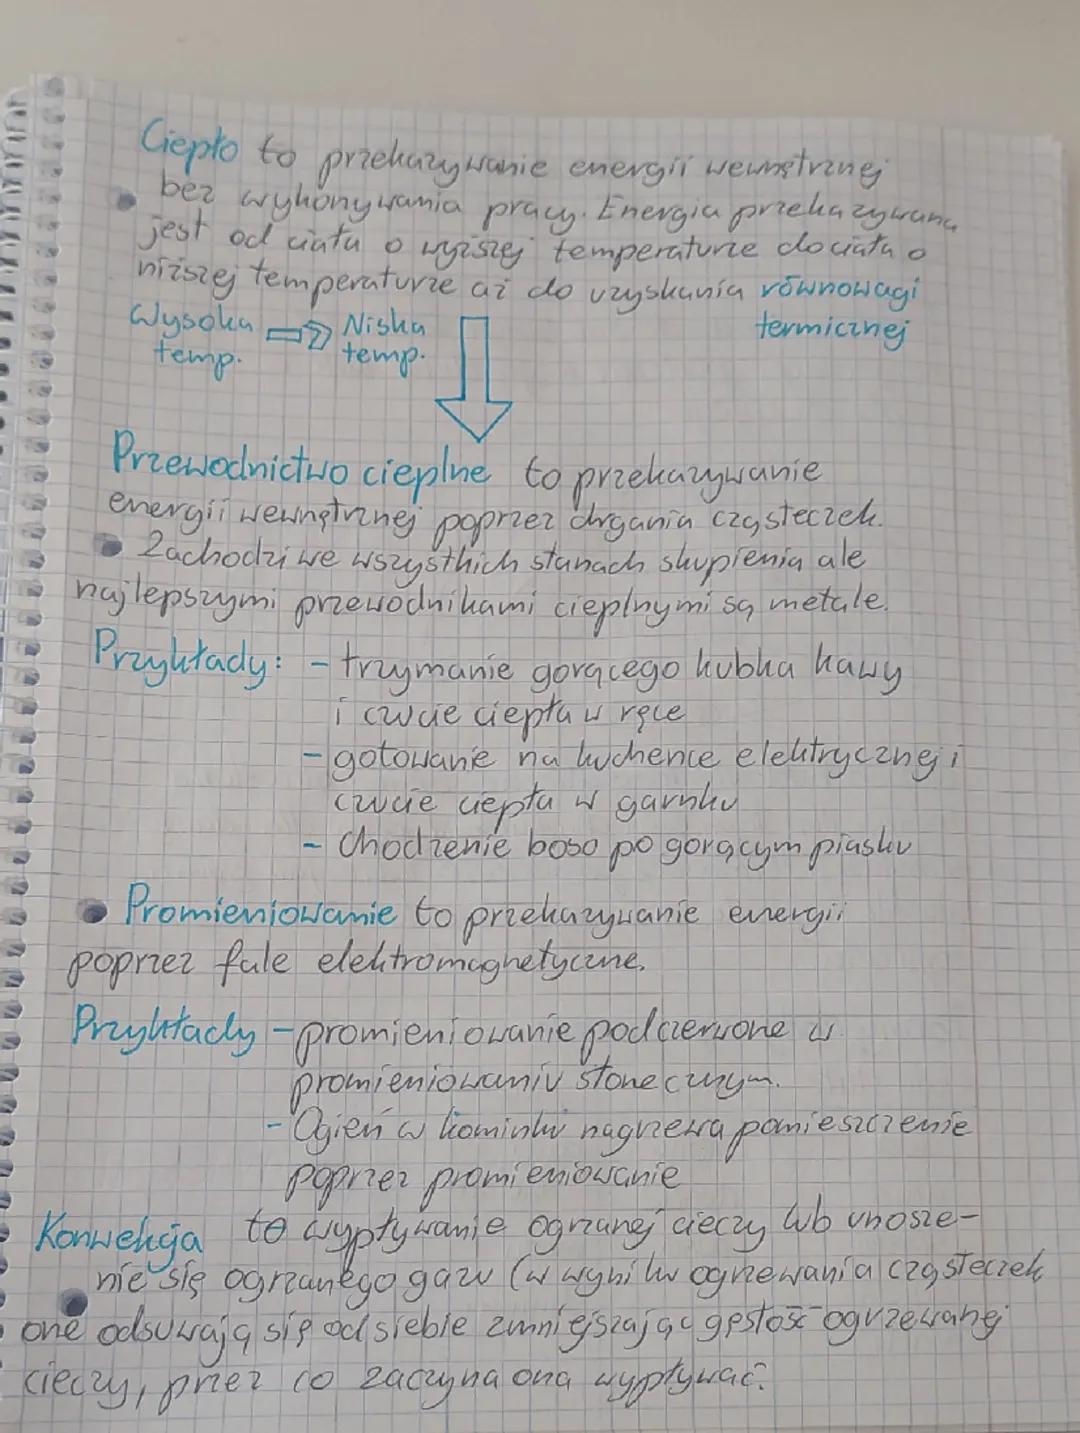 Ciepło to przekazywanie energii wewnętrznej
bez wykonywania pracy. Energia przekazywana
jest od ciała o wyższej temperaturze do ciała o
niższej temperaturze aż do uzyskania równowagi
termicznej
Wysoka ⇒ Niska
temp. temp.
Przewodnictwo cieplne to przekazywanie
energii wewnętrznej poprzez drgania cząsteczek.
Zachodzi we wszystkich stanach skupienia ale
najlepszymi przewodnikami cieplnymi są metale.
Przykłady: - trzymanie gorącego kubka kawy
i czucie ciepła w ręce
- gotowanie na kuchence elektrycznej i
czucie ciepła w garnku
- Chodzenie boso po gorącym piasku
Promieniowanie to przekazywanie energii
poprzez fale elektromagnetyczne.
Przykłady - promieniowanie podczerwone w
promieniowaniu słonecznym.
- Ogień w kominku nagrzewa pomieszczenie
poprzez promieniowanie
Konwekcja to wypływanie ogrzanej cieczy lub unosze-
nie się ogrzanego gazu (w wyniku ogrzewania cząsteczek
one odsuwają się od siebie zmniejszając gęstość ogrzewanej
cieczy, przez co zaczyna ona wypływać.